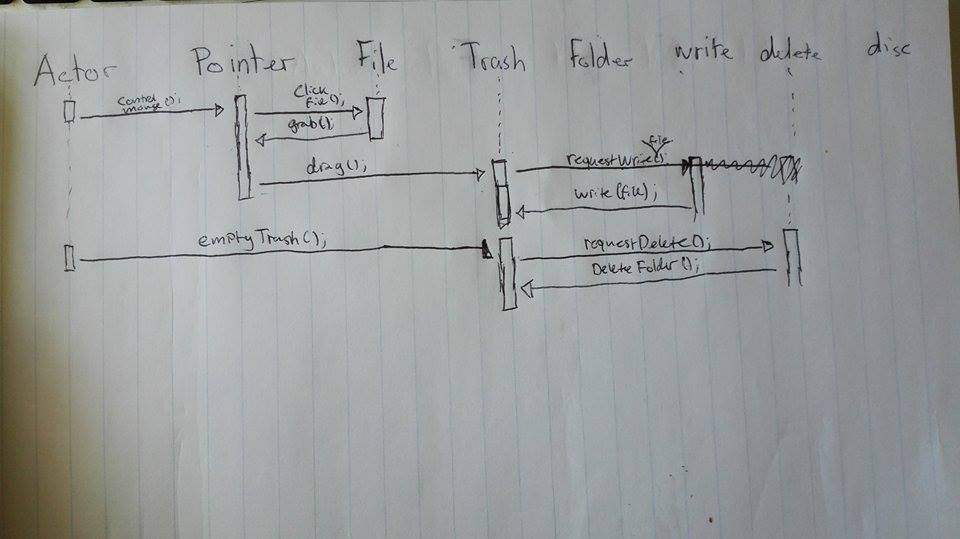 Actor Pointer File Trash Folder write delete disc
Control
mouse();
Click
File();
grab();
drag();
file
requestWrite();
write(file);
emptyTrash();
requestDelete();
DeleteFolder();